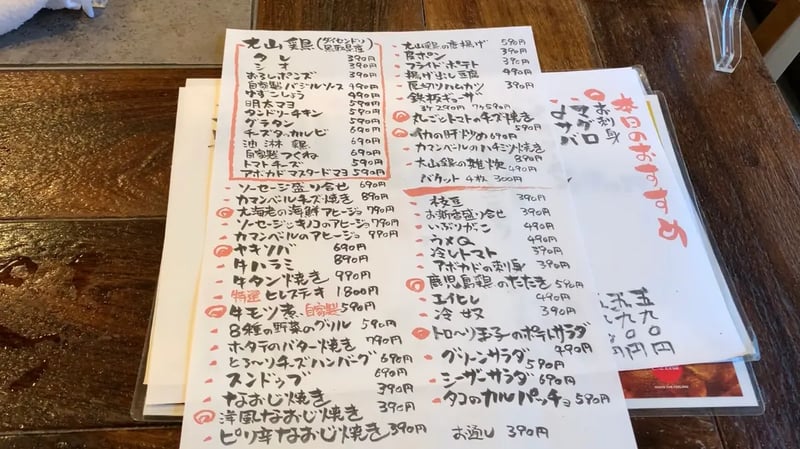 大山鶏(ダイセンドリ 鳥取県産)
タレ 390円
シオ 390円
おろしポンズ 390円
自家製バジルソース 490円
ゆずこしょう 490円
明太マヨ 590円
タンドリーチキン 590円
グラタン 590円
チーズタッカルビ 690円
油淋鶏 690円
自家製つくね 590円
トマトチーズ 590円
アボカドマスタードマヨ 590円
ソーセージ盛り合せ 690円
カマンベールチーズ焼き 890円
大海老の海鮮アヒージョ 790円
ソーセージとキノコのアヒージョ 790円
カマンベールのアヒージョ 990円
ヤキソバ 690円
牛ハラミ 890円
牛タン焼き 990円
特選ヒレステーキ 1800円
牛モツ煮 自家製 590円
8種の野菜のグリル 590円
ホタテのバター焼き 790円
とろ〜りチーズハンバーグ 690円
スンドゥブ 690円
なおじ焼き 390円
洋風なおじ焼き 390円
ピリ辛なおじ焼き 390円
大山鶏の唐揚げ 590円
皮ポン 390円
フライドポテト 390円
揚げ出し豆腐 490円
厚切りハムカツ 390円
鉄板ギョーザ
3ケ290円 7ケ590円
丸ごとトマトのチーズ焼き 590円
イカの肝炒め 690円
カマンベールのハチミツ焼き 890円
大山鶏の雑炊 490円
バケット4枚 300円
枝豆 390円
お新香盛り合せ 390円
いぶりガッコ 490円
ウメQ 490円
冷しトマト 390円
アボカドの刺身 390円
鹿児島鶏のたたき 590円
エイヒレ 490円
冷奴 390円
トロ〜リ玉子のポテトサラダ 490円
グリーンサラダ 590円
シーザーサラダ 690円
タコのカルパッチョ 590円
お通し 390円
本日のおすすめ
お刺身
マグロ 五九〇円
〆サバ